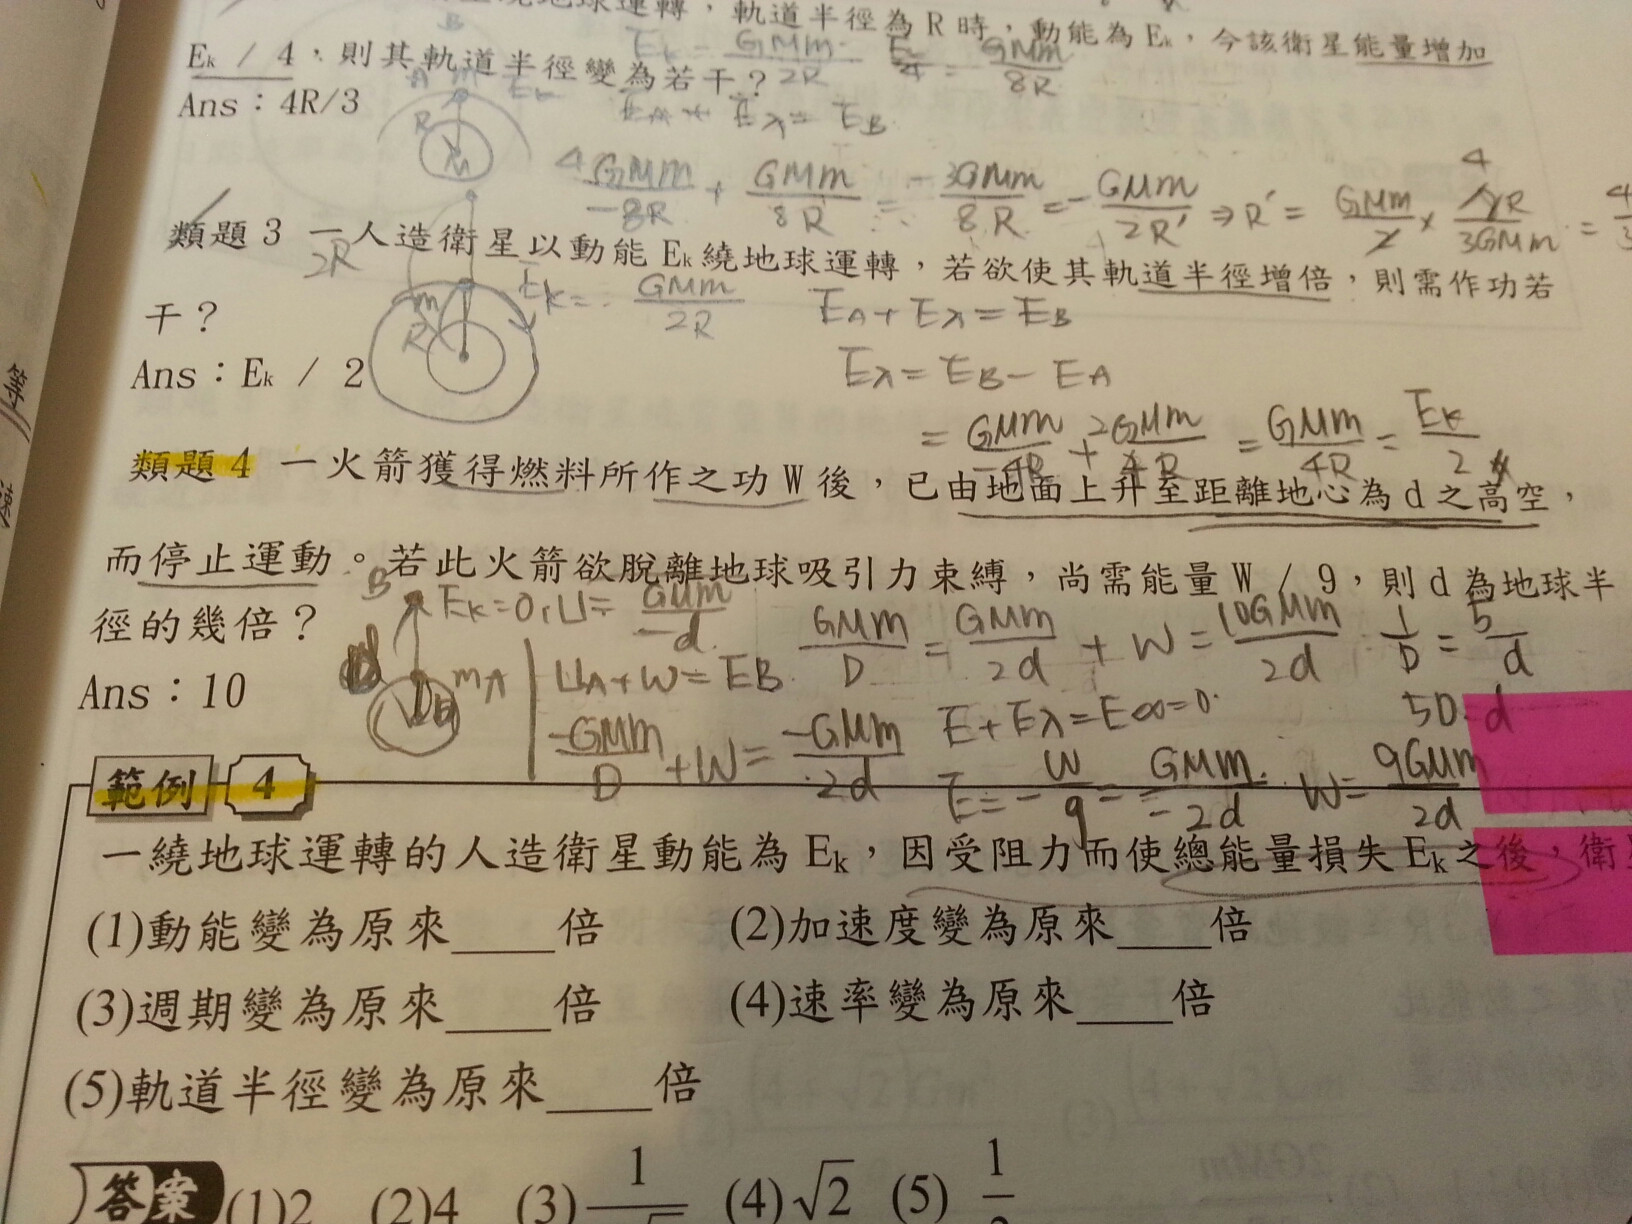 繞地球運轉，軌道半徑為 R 時，動能為 Ek，今該衛星能量增加
Ek / 4，則其軌道半徑變為若干？
Ek = GMm/2R Ek/4 = GMm/8R
Ans：4R/3
EA + E入 = EB
4GMm/-8R + GMm/8R = -3GMm/8R = -GMm/2R' ⇒ R' = GMm/2 × 8R/3GMm = 4/3
類題 3 一人造衛星以動能 Ek 繞地球運轉，若欲使其軌道半徑增倍，則需作功若
干？
Ek = GMm/2R EA + E入 = EB
Ans：Ek / 2
E入 = EB - EA
= GMm/-4R + 2GMm/4R = GMm/4R = Ek/2
類題 4 一火箭獲得燃料所作之功 W 後，已由地面上升至距離地心為 d 之高空，
而停止運動。若此火箭欲脫離地球吸引力束縛，尚需能量 W / 9，則 d 為地球半
徑的幾倍？
B Ek=0, U= GMm/-d
GMm/D = GMm/2d + W = 10GMm/2d 1/D = 5/d
Ans：10
mA UA+W=EB E+E入=E∞=0 5D=d
-GMm/D + W = -GMm/2d
E = -W/9 = GMm/-2d W = 9GMm/2d
範例 4
一繞地球運轉的人造衛星動能為 Ek，因受阻力而使總能量損失 Ek 之後，衛
(1)動能變為原來____倍 (2)加速度變為原來____倍
(3)週期變為原來____倍 (4)速率變為原來____倍
(5)軌道半徑變為原來____倍
答案 (1)2 (2)4 (3) 1/√ (4)√2 (5) 1/